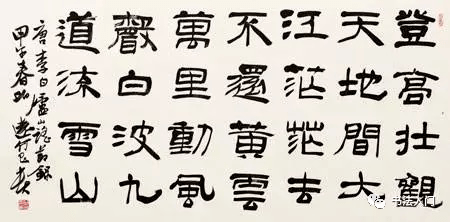 登高壯觀
天地間大
江茫茫去
不還黃雲
萬里動風
白波九
道流雪山
唐李白廬山謠
甲午春
书法人间